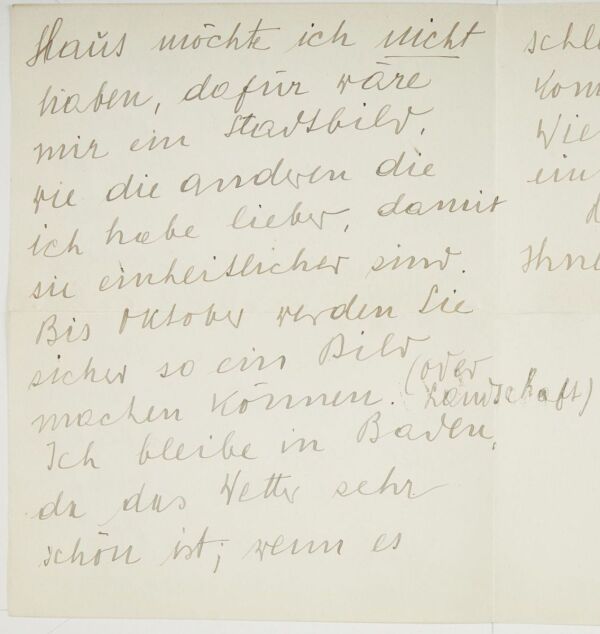 Haus möchte ich nicht
haben, dafür wäre
mir ein Stadtbild,
wie die anderen die
ich habe lieber, damit
sie einheitlicher sind.
Bis Oktober werden Sie
sicher so ein Bild
(oder
machen können. Landschaft)
Ich bleibe in Baden,
da das Wetter sehr
schön ist; wenn es
schl
kom
Wie
ein
d
Ihne